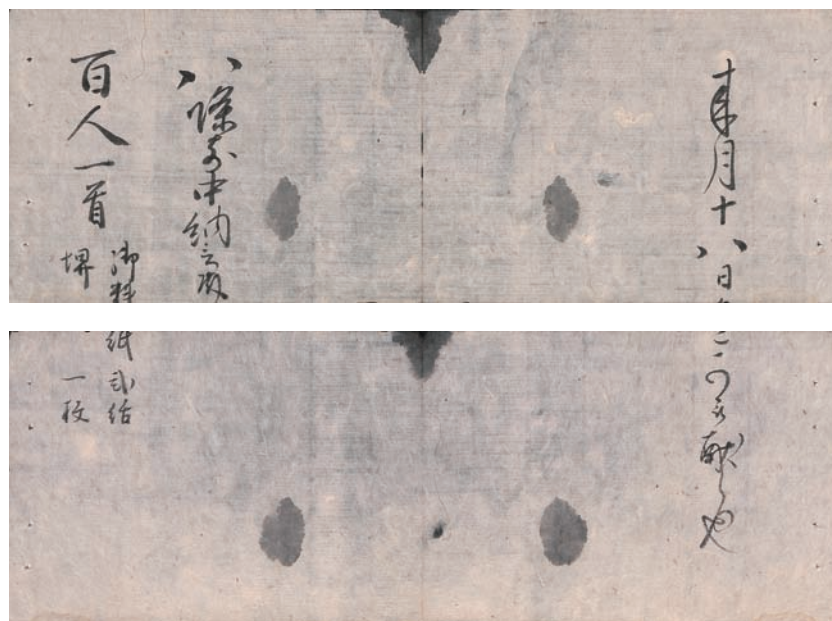 来月十八日可被献也
八條前中納言殿
百人一首
御料紙弐結
堺一枚